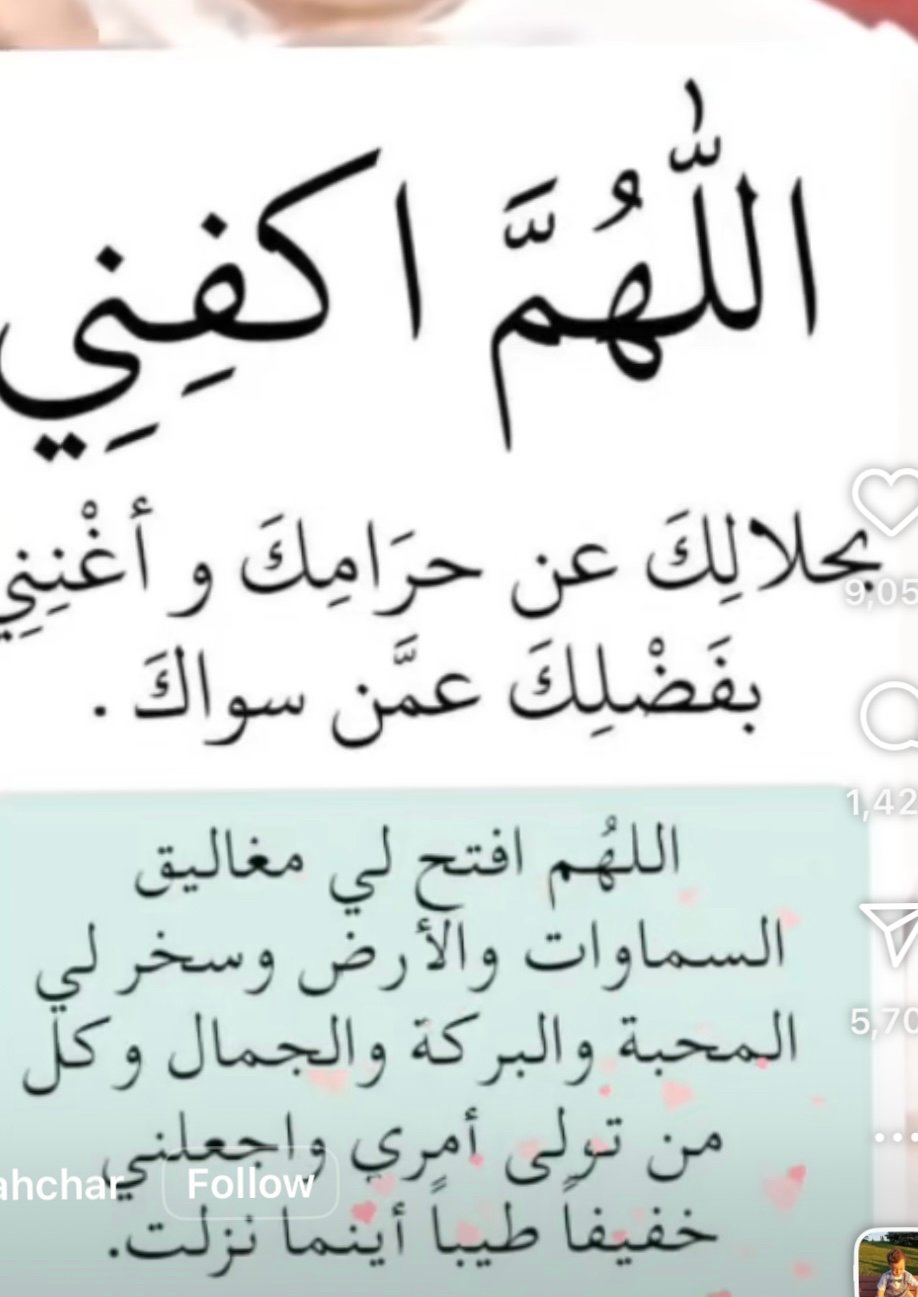 اللّٰهُمَّ اكفِنِي
بحلالِكَ عن حرَامِكَ و أغْنِنِي
بفَضْلِكَ عمَّن سواكَ .
اللهُم افتح لي مغاليق
السماوات والأرض وسخر لي
المحبة والبركة والجمال وكل
من تولى أمري واجعلني
خفيفاً طيباً أينما نزلت.
9,05
1,42
5,70
ahchar Follow